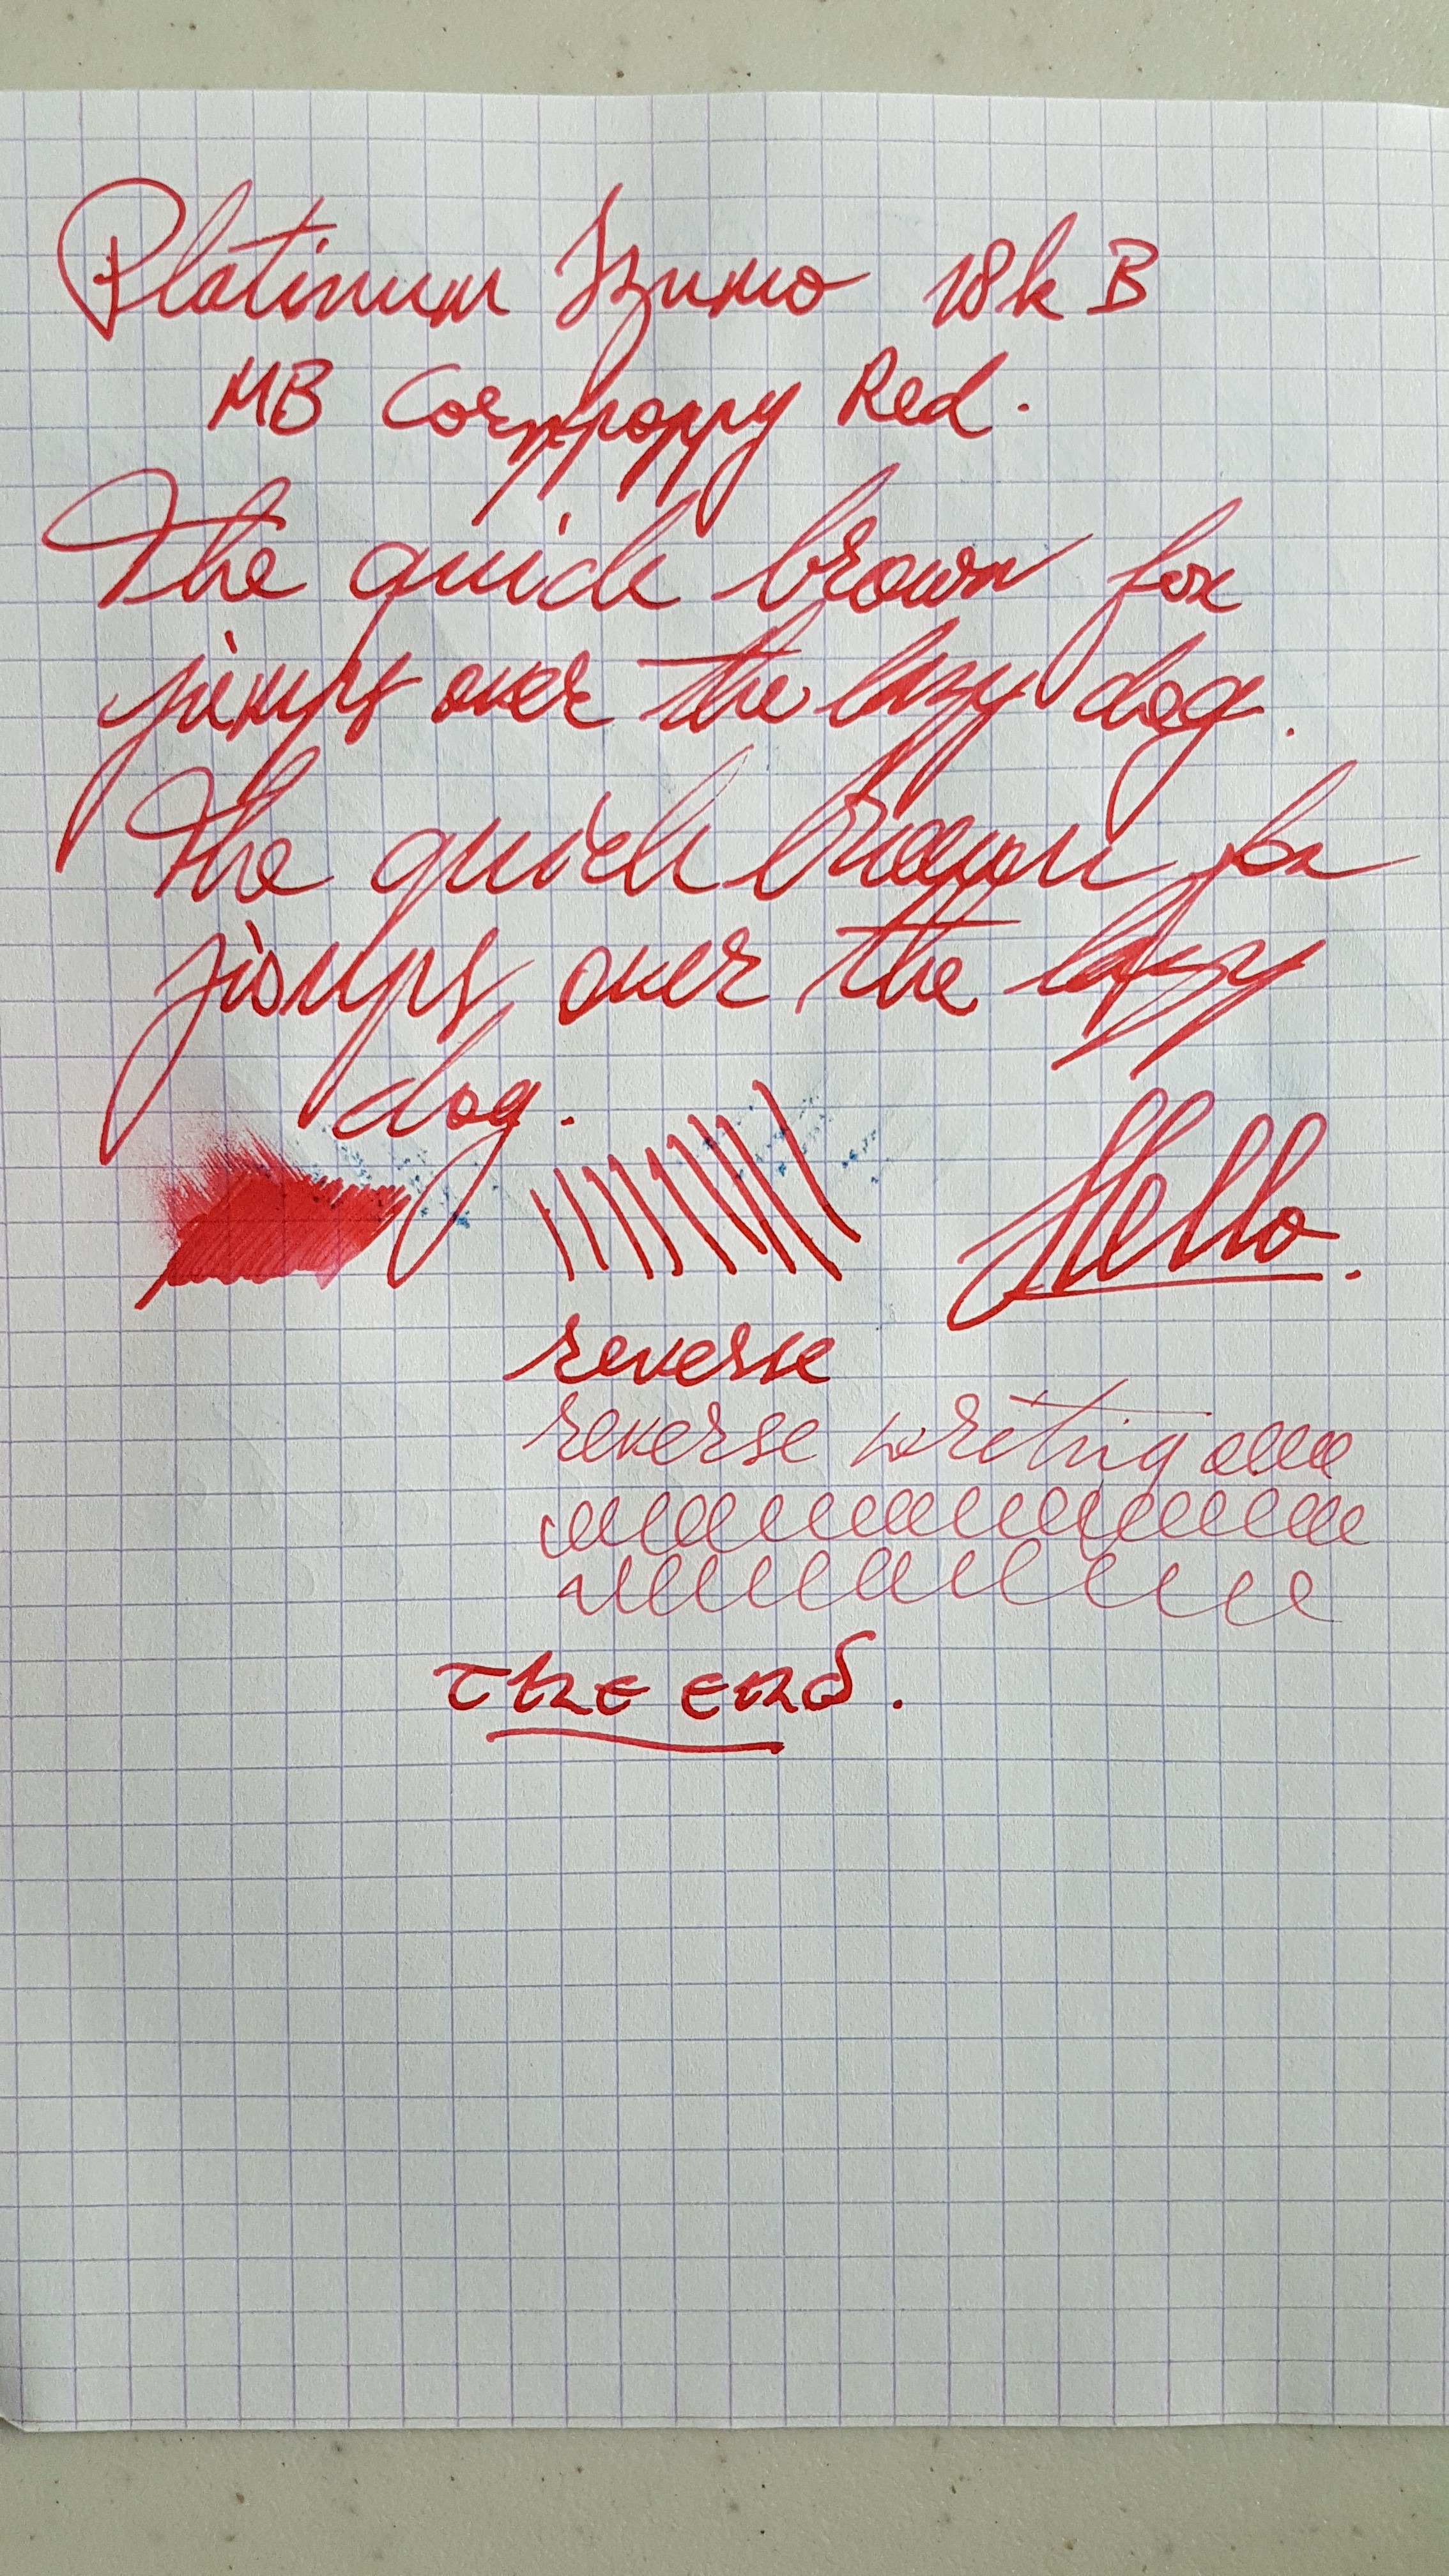 Platinum Izumo 18k B
MB Cornpoppy Red.
The quick brown fox
jumps over the lazy dog.
The quick brown fox
jumps over the lazy
dog.
Hello.
reverse
reverse writing elle
the end.